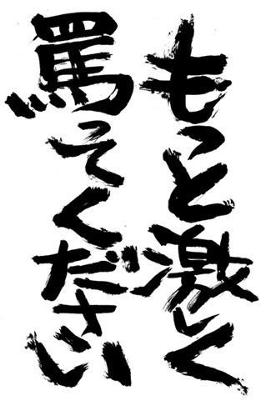 もっと激しく
罵ってください